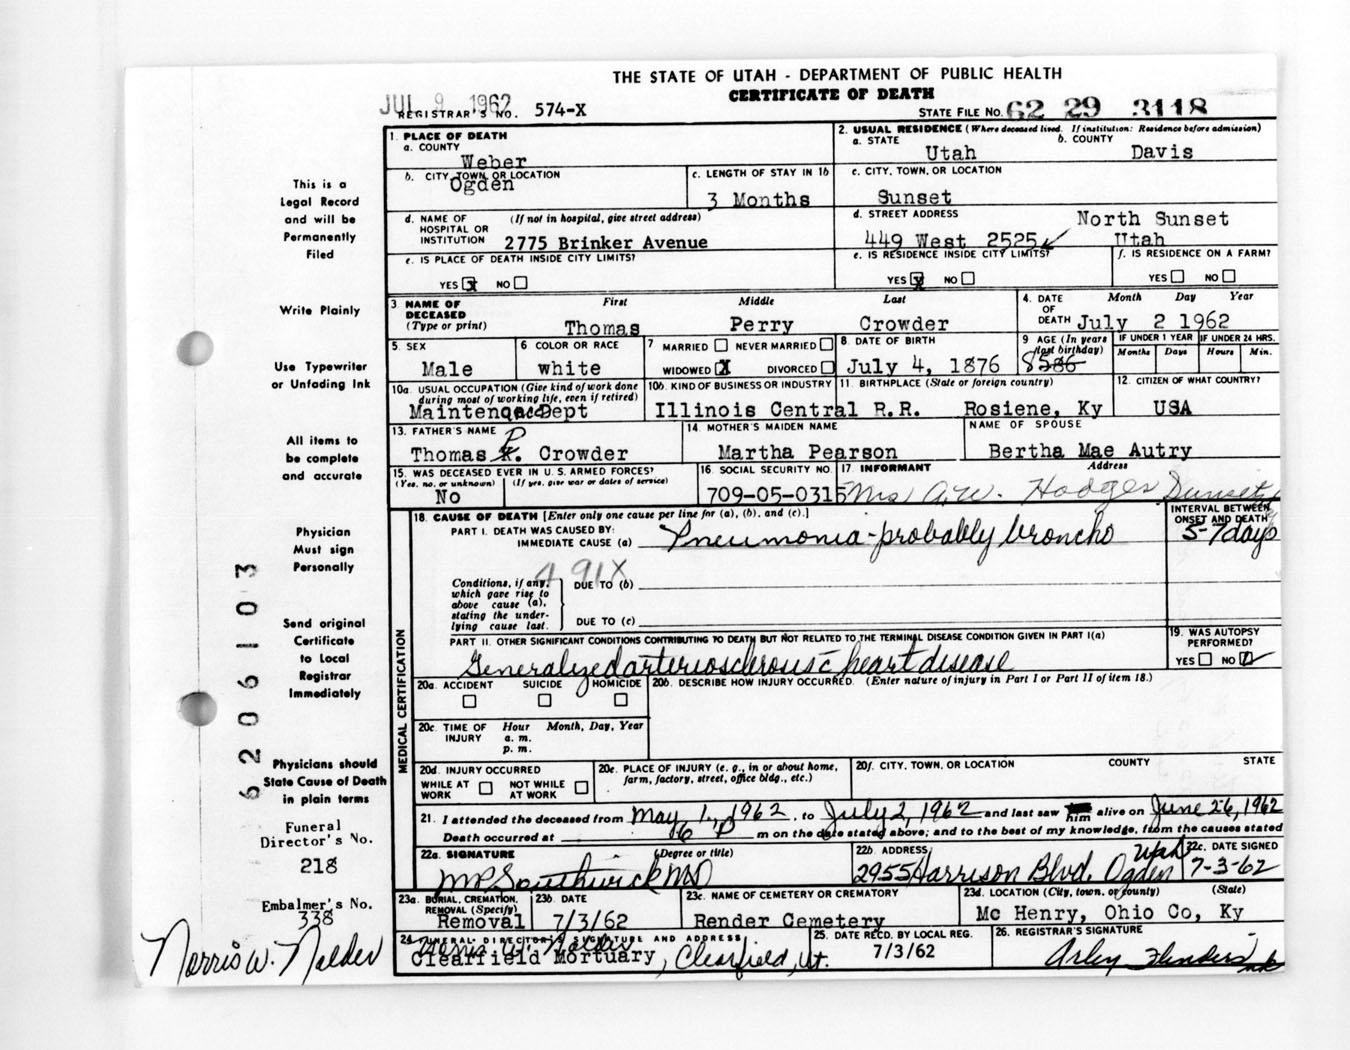 THE STATE OF UTAH - DEPARTMENT OF PUBLIC HEALTH
CERTIFICATE OF DEATH
JUL 9 1962
REGISTRAR'S NO. 574-X
STATE FILE NO. 62 29 3118
1. PLACE OF DEATH
a. COUNTY
Weber
2. USUAL RESIDENCE (Where deceased lived. If institution: Residence before admission)
a. STATE b. COUNTY
Utah Davis
b. CITY, TOWN, OR LOCATION
Ogden
c. LENGTH OF STAY IN 1b
3 Months
c. CITY, TOWN, OR LOCATION
Sunset
d. NAME OF HOSPITAL OR INSTITUTION (If not in hospital, give street address)
2775 Brinker Avenue
d. STREET ADDRESS
North Sunset
449 West 2525 Utah
e. IS PLACE OF DEATH INSIDE CITY LIMITS?
YES X NO
e. IS RESIDENCE INSIDE CITY LIMITS?
YES X NO
f. IS RESIDENCE ON A FARM?
YES NO
3. NAME OF DECEASED (Type or print)
First Middle Last
Thomas Perry Crowder
4. DATE OF DEATH Month Day Year
July 2 1962
5. SEX
Male
6 COLOR OR RACE
white
7 MARRIED NEVER MARRIED
WIDOWED X DIVORCED
8. DATE OF BIRTH
July 4, 1876
9 AGE (In years last birthday)
85
86
IF UNDER 1 YEAR IF UNDER 24 HRS.
Months Days Hours Min.
10a. USUAL OCCUPATION (Give kind of work done during most of working life, even if retired)
Maintenance Dept
10b. KIND OF BUSINESS OR INDUSTRY
Illinois Central R.R.
11. BIRTHPLACE (State or foreign country)
Rosiene, Ky
12. CITIZEN OF WHAT COUNTRY?
USA
13. FATHER'S NAME
P
Thomas K. Crowder
14. MOTHER'S MAIDEN NAME
Martha Pearson
NAME OF SPOUSE
Bertha Mae Autry
15. WAS DECEASED EVER IN U.S. ARMED FORCES?
(Yes, no, or unknown) (If yes, give war or dates of service)
No
16. SOCIAL SECURITY NO.
709-05-0315
17. INFORMANT Address
Mrs A.W. Hodges Sunset
MEDICAL CERTIFICATION
18. CAUSE OF DEATH [Enter only one cause per line for (a), (b), and (c).]
INTERVAL BETWEEN ONSET AND DEATH
PART I. DEATH WAS CAUSED BY:
IMMEDIATE CAUSE (a) Pneumonia - probably broncho 5-7 days
491X
Conditions, if any, which gave rise to above cause (a), stating the underlying cause last.
DUE TO (b)
DUE TO (c)
PART II. OTHER SIGNIFICANT CONDITIONS CONTRIBUTING TO DEATH BUT NOT RELATED TO THE TERMINAL DISEASE CONDITION GIVEN IN PART I(a)
Generalized arteriosclerosis c̄ heart disease
19. WAS AUTOPSY PERFORMED?
YES NO
20a. ACCIDENT SUICIDE HOMICIDE
20b. DESCRIBE HOW INJURY OCCURRED. (Enter nature of injury in Part I or Part II of item 18.)
20c. TIME OF INJURY Hour Month, Day, Year
a. m.
p. m.
20d. INJURY OCCURRED
WHILE AT WORK NOT WHILE AT WORK
20e. PLACE OF INJURY (e. g., in or about home, farm, factory, street, office bldg., etc.)
20f. CITY, TOWN, OR LOCATION COUNTY STATE
21. I attended the deceased from May 1, 1962, to July 2, 1962 and last saw him alive on June 26, 1962
Death occurred at 6 P m on the date stated above; and to the best of my knowledge, from the causes stated
22a. SIGNATURE (Degree or title)
MP Southwick MD
22b. ADDRESS
2955 Harrison Blvd. Ogden Utah
22c. DATE SIGNED
7-3-62
23a. BURIAL, CREMATION, REMOVAL (Specify)
Removal
23b. DATE
7/3/62
23c. NAME OF CEMETERY OR CREMATORY
Render Cemetery
23d. LOCATION (City, town, or county) (State)
Mc Henry, Ohio Co, Ky
24. FUNERAL DIRECTOR'S SIGNATURE AND ADDRESS
Norris W. Nalder
Clearfield Mortuary, Clearfield, Ut.
25. DATE RECD. BY LOCAL REG.
7/3/62
26. REGISTRAR'S SIGNATURE
Arley Flinders
This is a
Legal Record
and will be
Permanently
Filed
Write Plainly
Use Typewriter
or Unfading Ink
All items to
be complete
and accurate
Physician
Must sign
Personally
Send original
Certificate
to Local
Registrar
Immediately
Physicians should
State Cause of Death
in plain terms
Funeral
Director's No.
218
Embalmer's No.
338
Norris W. Nalder
6206103